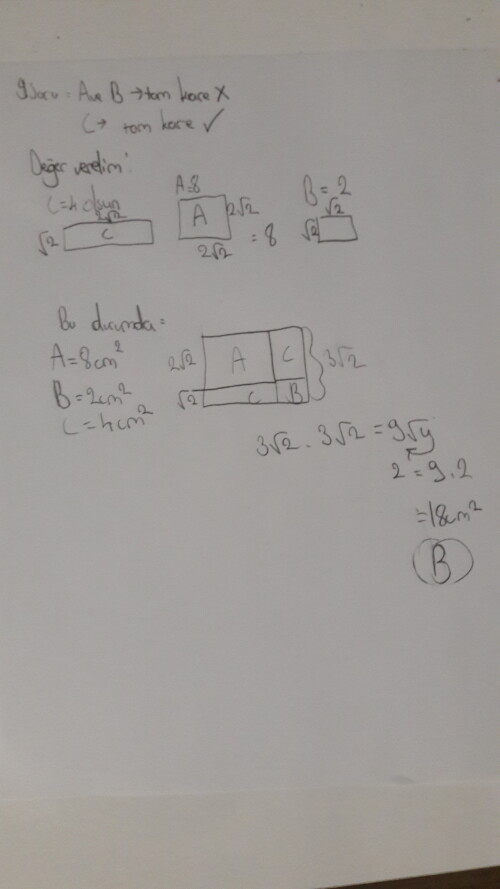 9. Soru: A ve B → tam kare X
C → tam kare ✓
Değer verelim:
C=4 olsun
2√2
√2 C
A=8
A 2√2
2√2 = 8
B = 2
√2
√2
Bu durumda =
A = 8cm²
B = 2cm²
C = 4cm²
2√2 A C 3√2
√2 C B
3√2 . 3√2 = 9√4
2 = 9.2
= 18cm²
B